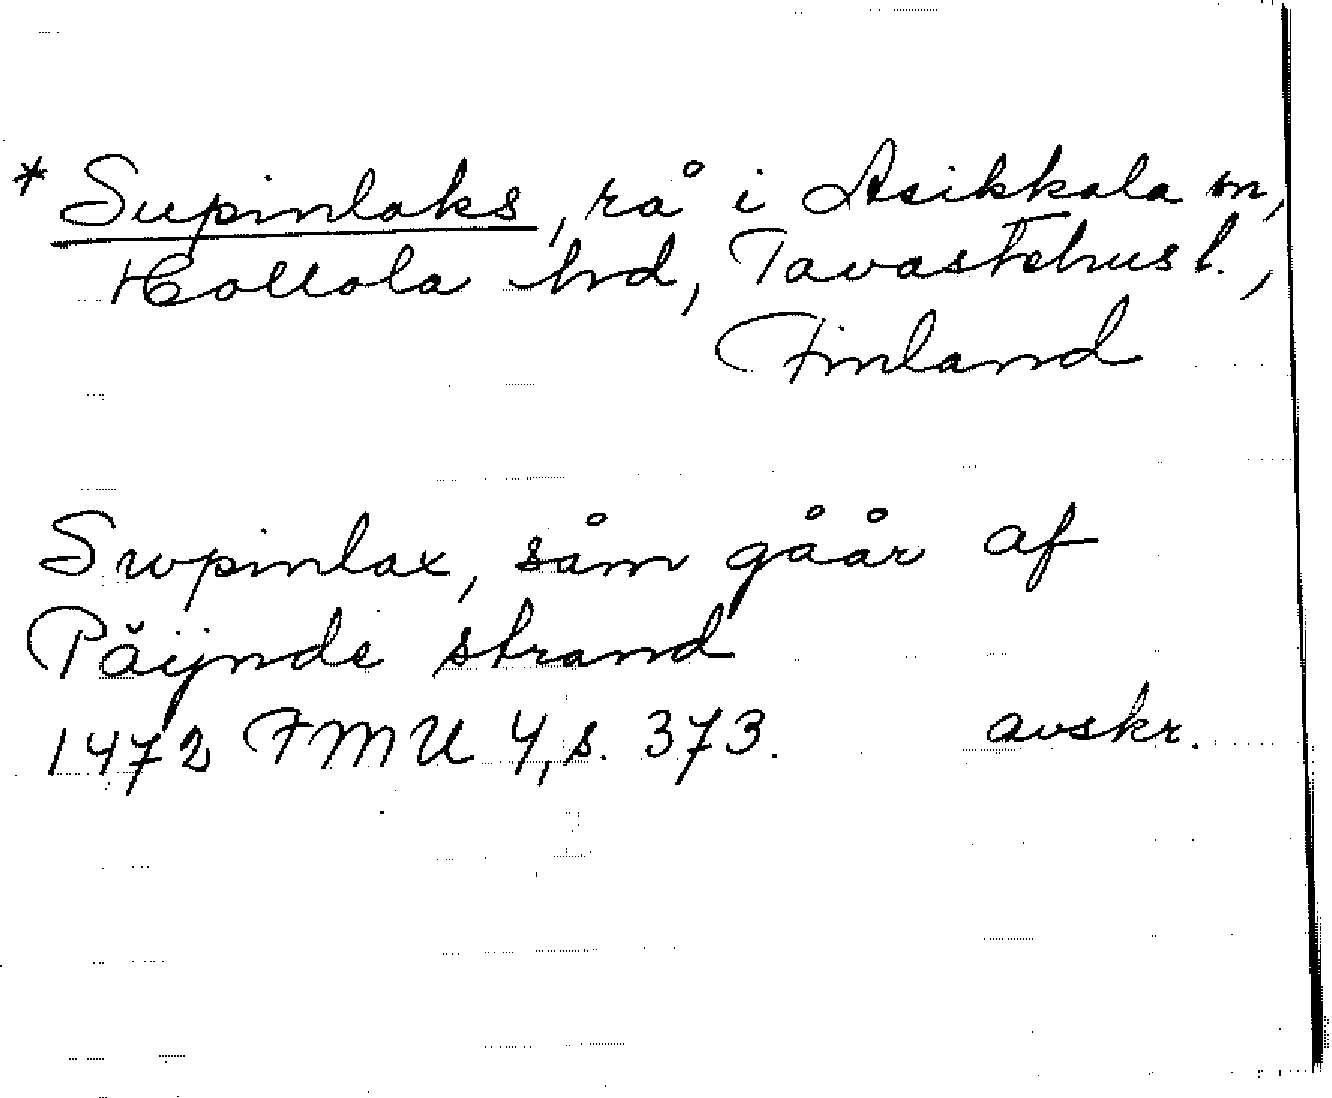 * Supinlaks, rå i Asikkala sn,
Hollola hrd, Tavastehus l.,
Finland
Swpinlax, såm gåår af
Päijnde strand
1472 FMU 4, s. 373. avskr.